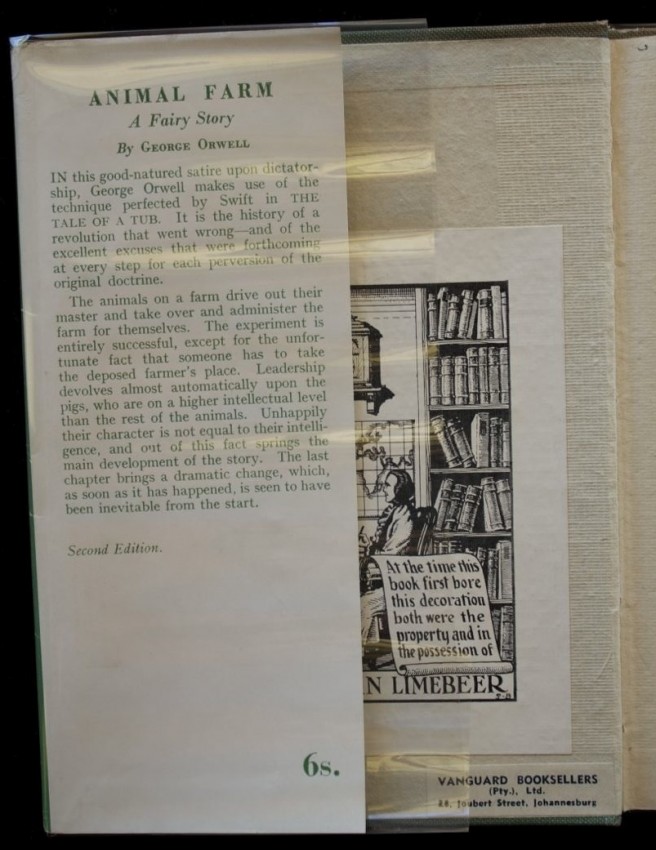 ANIMAL FARM
A Fairy Story
By GEORGE ORWELL
IN this good-natured satire upon dictator-
ship, George Orwell makes use of the
technique perfected by Swift in THE
TALE OF A TUB. It is the history of a
revolution that went wrong—and of the
excellent excuses that were forthcoming
at every step for each perversion of the
original doctrine.
The animals on a farm drive out their
master and take over and administer the
farm for themselves. The experiment is
entirely successful, except for the unfor-
tunate fact that someone has to take
the deposed farmer's place. Leadership
devolves almost automatically upon the
pigs, who are on a higher intellectual level
than the rest of the animals. Unhappily
their character is not equal to their intelli-
gence, and out of this fact springs the
main development of the story. The last
chapter brings a dramatic change, which,
as soon as it has happened, is seen to have
been inevitable from the start.
Second Edition.
6s.
At the time this
book first bore
this decoration
both were the
property and in
the possession of
N LIMEBEER
VANGUARD BOOKSELLERS
(Pty.), Ltd.
Joubert Street, Johannesburg